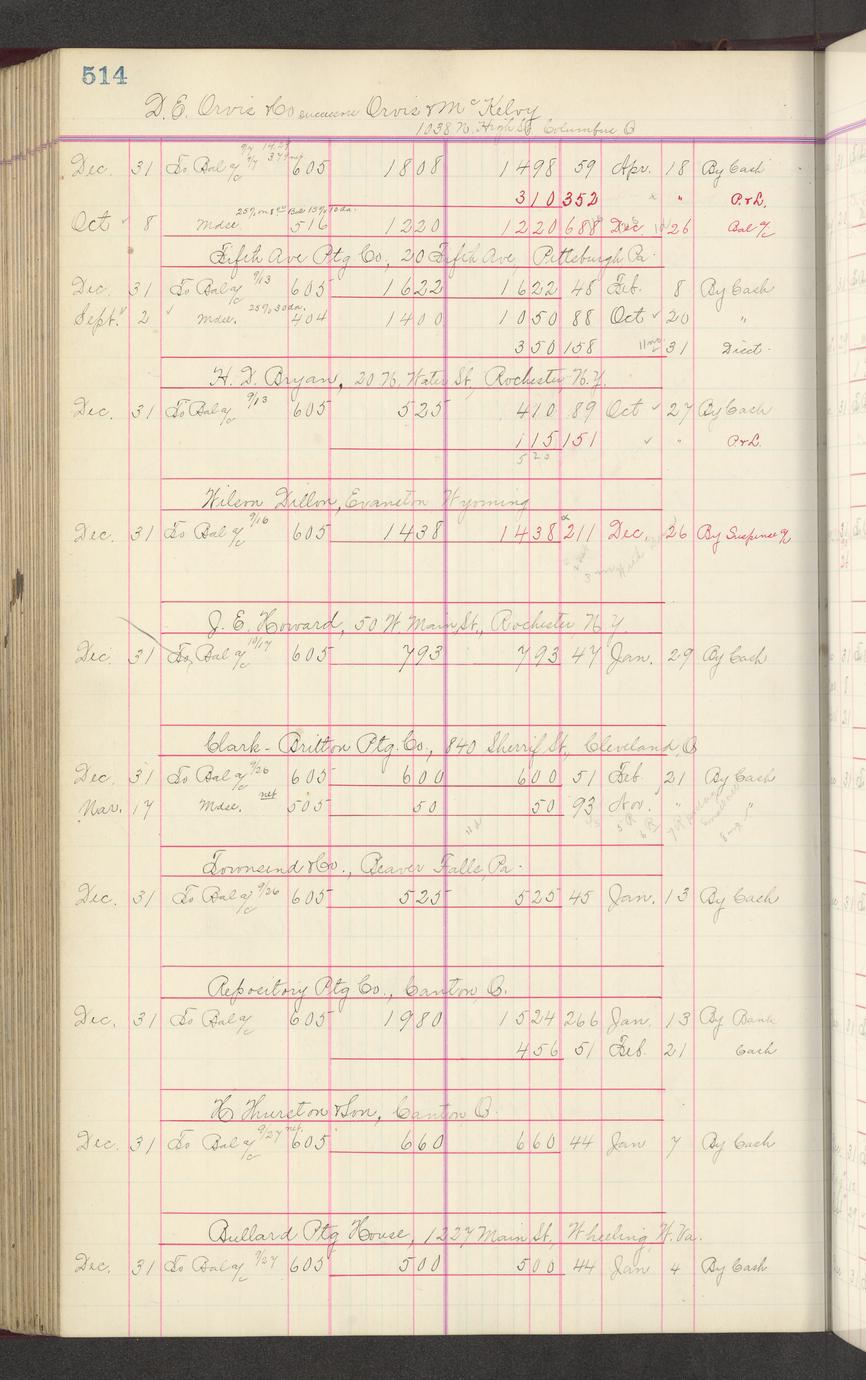 514
D. E. Orvis & Co successors Orvis & McKelvy
1038 N. High St, Columbus O
Dec. 31 To Bal a/c 605 1808 1498 59 Apr. 18 By Cash
310 352 " P. & L.
25% on 8 15% 10 da.
Oct 8 Mdse. 516 1220 1220 688 Dec 26 Bal a/c
Fifth Ave Ptg Co, 20 Fifth Ave, Pittsburgh Pa.
Dec. 31 To Bal a/c 9/13 605 1622 1622 48 Feb. 8 By Cash
Sept. 2 Mdse. 25% 30 da. 404 1400 1050 88 Oct 20 "
350 158 31 Disct.
H. D. Bryan, 20 N. Water St, Rochester N.Y.
Dec. 31 To Bal a/c 9/13 605 525 410 89 Oct 27 By Cash
115 151 " P. & L.
525
Wilson Dillon, Evanston Wyoming
Dec. 31 To Bal a/c 9/16 605 1438 1438 211 Dec. 26 By Suspense a/c
J. E. Howard, 50 W. Main St., Rochester N Y
Dec. 31 To Bal a/c 10/17 605 793 793 47 Jan. 29 By Cash
Clark-Britton Ptg. Co., 840 Sherrif St., Cleveland, O
Dec. 31 To Bal a/c 9/26 605 600 600 51 Feb. 21 By Cash
Mar. 17 Mdse. net 505 50 50 93 Nov. " "
Townsend & Co., Beaver Falls, Pa.
Dec. 31 To Bal a/c 9/26 605 525 525 45 Jan. 13 By Cash
Repository Ptg Co., Canton O.
Dec. 31 To Bal a/c 605 1980 1524 266 Jan. 13 By Bank
456 51 Feb. 21 Cash
H Thurston & Son, Canton O.
Dec. 31 To Bal a/c 9/27 net. 605 660 660 44 Jan 7 By Cash
Bullard Ptg House, 1227 Main St., Wheeling, W. Va.
Dec. 31 To Bal a/c 9/27 605 500 500 44 Jan 4 By Cash